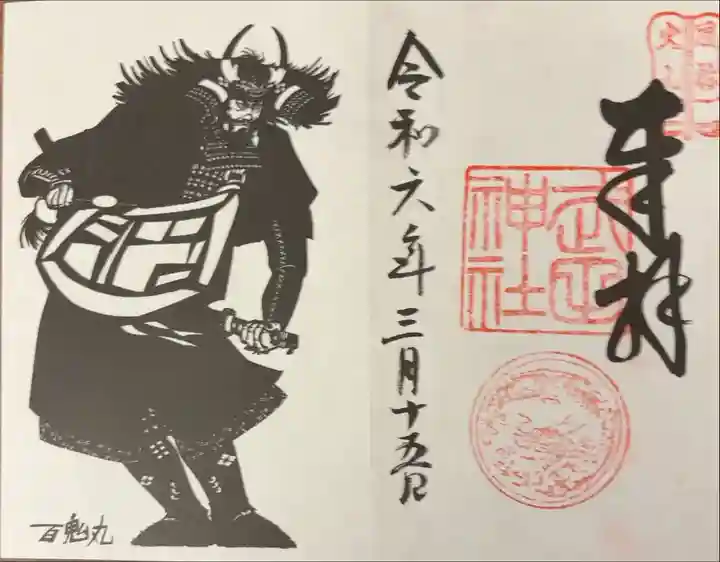 奉拝
武田
神社
令和六年三月十五日
百鬼丸